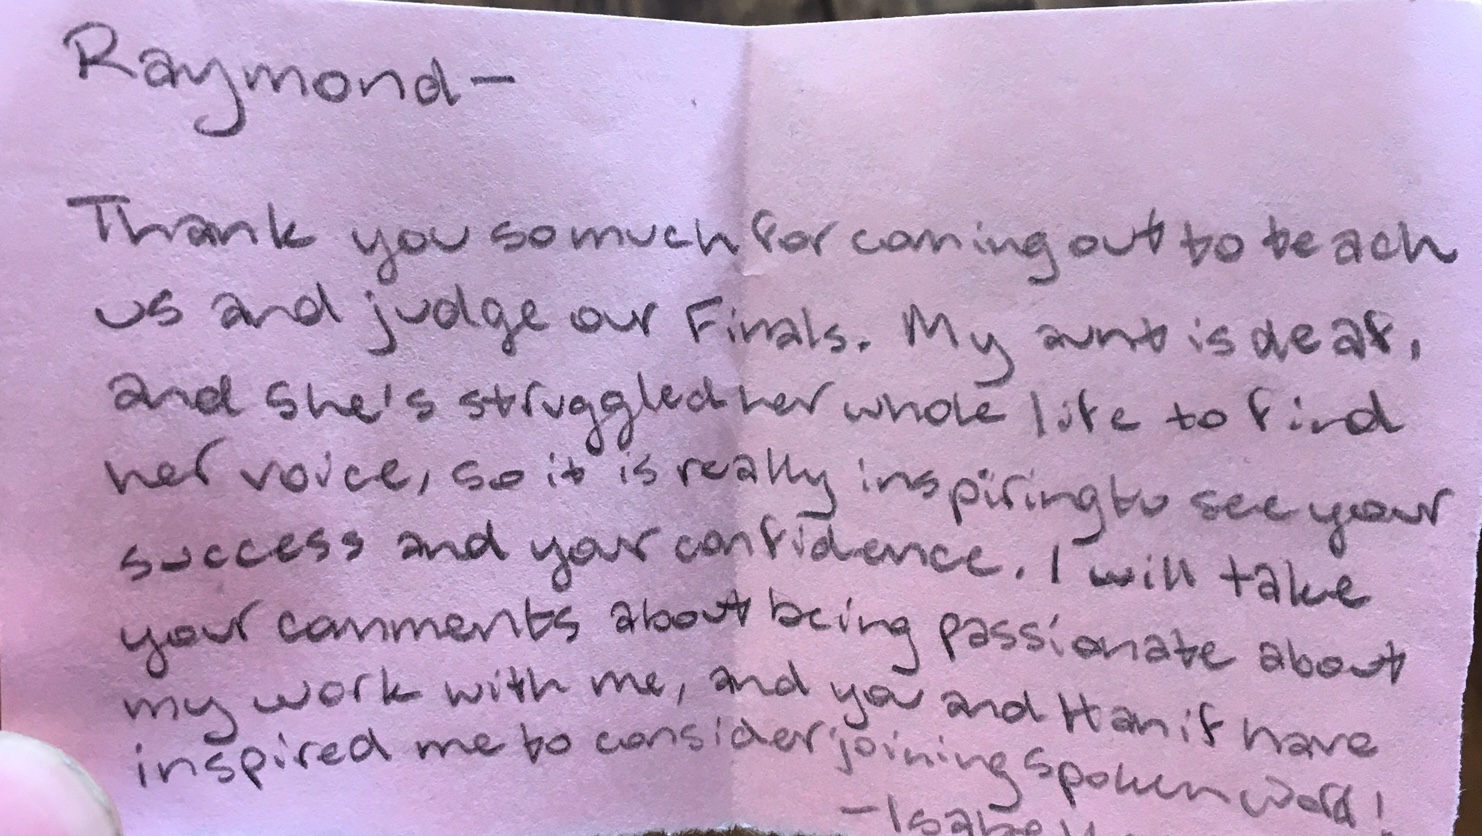 Raymond-
Thank you so much for coming out to teach
us and judge our Finals. My aunt is deaf,
and she's struggled her whole life to find
her voice, so it is really inspiring to see your
success and your confidence. I will take
your comments about being passionate about
my work with me, and you and Hanif have
inspired me to consider joining spoken word!